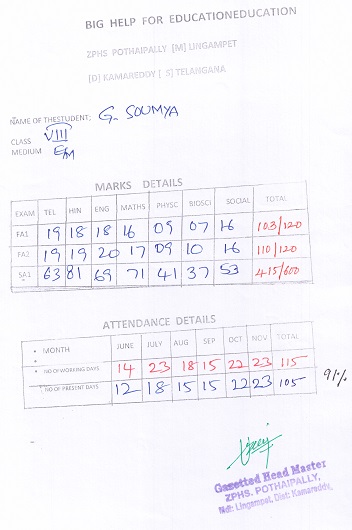 BIG HELP FOR EDUCATIONEDUCATION
ZPHS POTHAIPALLY [M] LINGAMPET
[D] KAMAREDDY [ S] TELANGANA
NAME OF THESTUDENT; G. SOUMYA
CLASS VIII
MEDIUM E/M
MARKS DETAILS
EXAM TEL HIN ENG MATHS PHYSC BIOSCI SOCIAL TOTAL
FA1 19 18 18 16 09 07 16 103/120
FA2 19 19 20 17 09 10 16 110/120
SA1 63 81 69 71 41 37 53 415/600
ATTENDANCE DETAILS
MONTH JUNE JULY AUG SEP OCT NOV TOTAL
NO OF WORKING DAYS 14 23 18 15 22 23 115
NO OF PRESENT DAYS 12 18 15 15 22 23 105 91%
Gazetted Head Master
ZPHS. POTHAIPALLY,
Mdl: Lingampet, Dist: Kamareddy,